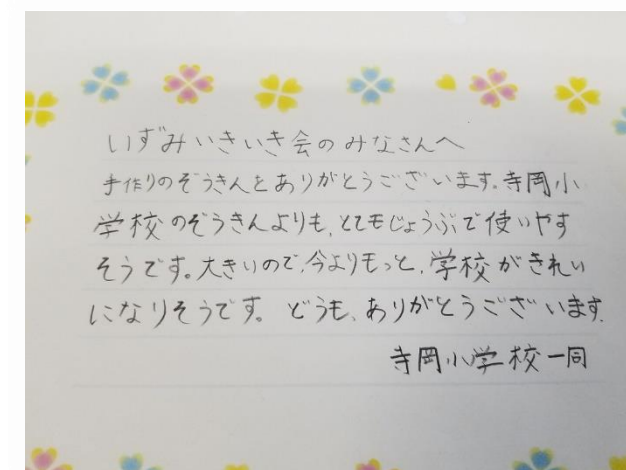 いずみいきいき会のみなさんへ
手作りのぞうきんをありがとうございます。寺岡小
学校のぞうきんよりも、とてもじょうぶで使いやす
そうです。大きいので、今よりもっと、学校がきれい
になりそうです。どうも、ありがとうございます。
寺岡小学校一同